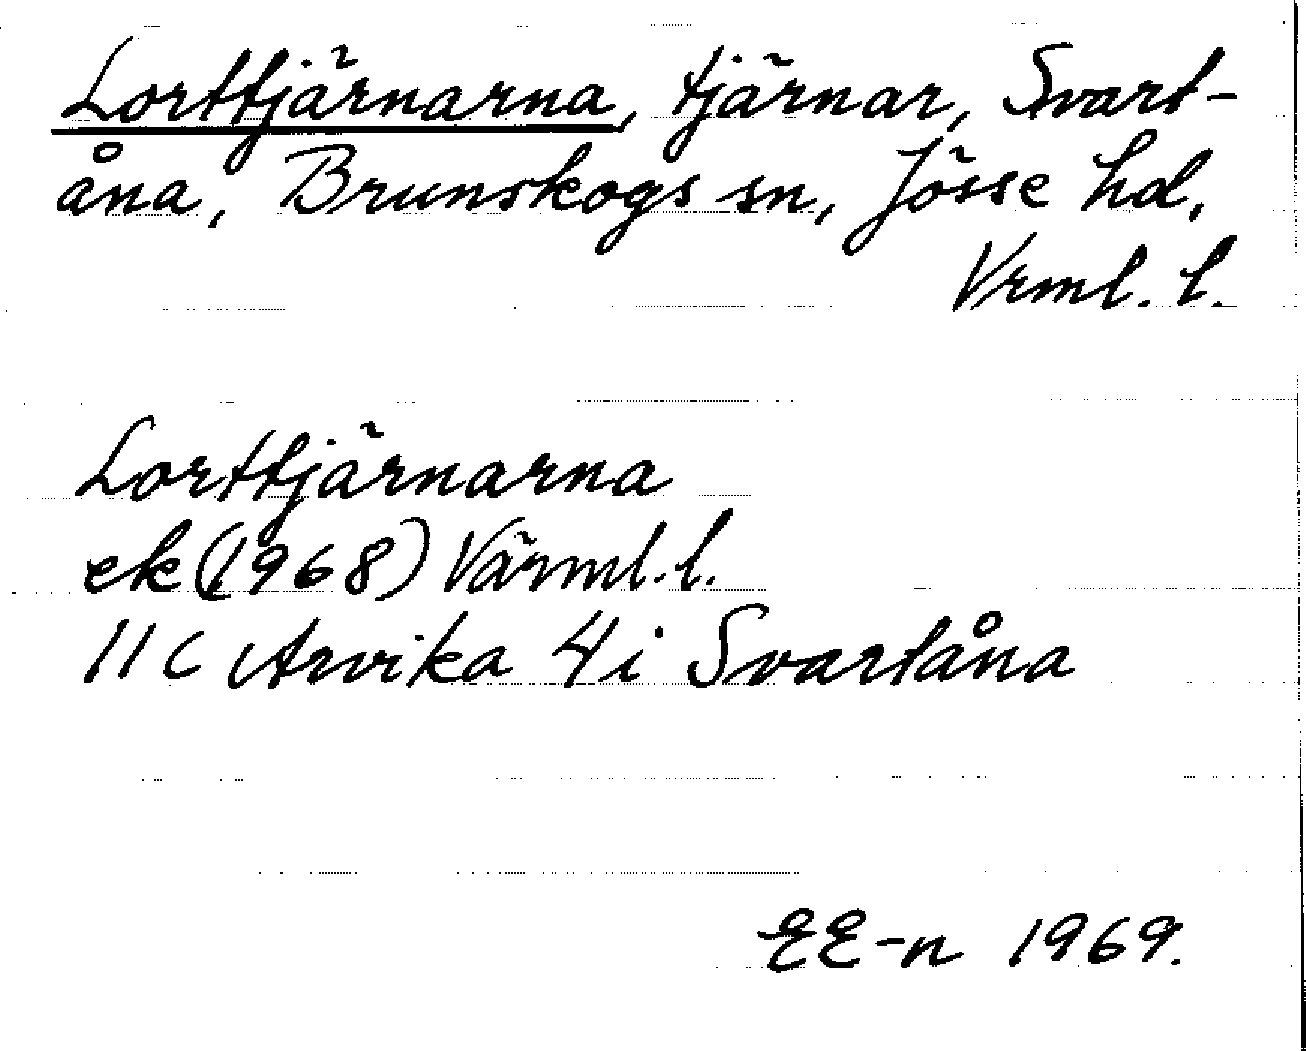 Lorttjärnarna, tjärnar, Svart-
åna, Brunskogs sn, Jösse hd,
Vrml. l.
Lorttjärnarna
ek (1968) Värml. l.
11C Arvika 4i Svartåna
EE-n 1969.